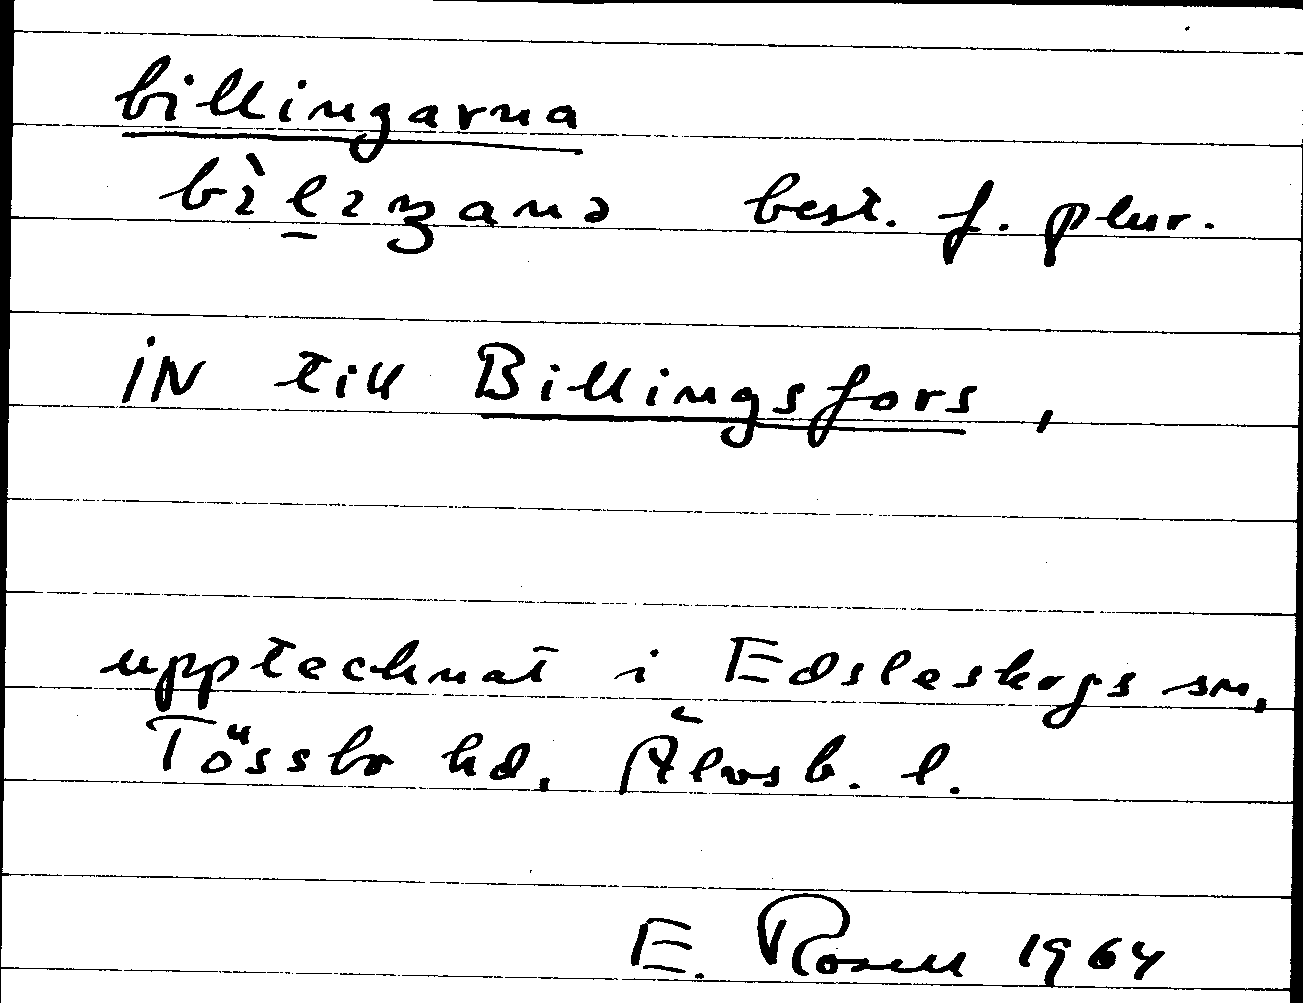 billingarna
best. f. plur.
IN till Billingsfors,
upptecknat i Edsleskogs sn,
Tössbo hd, Älvsb. l.
E. Rosell 1964